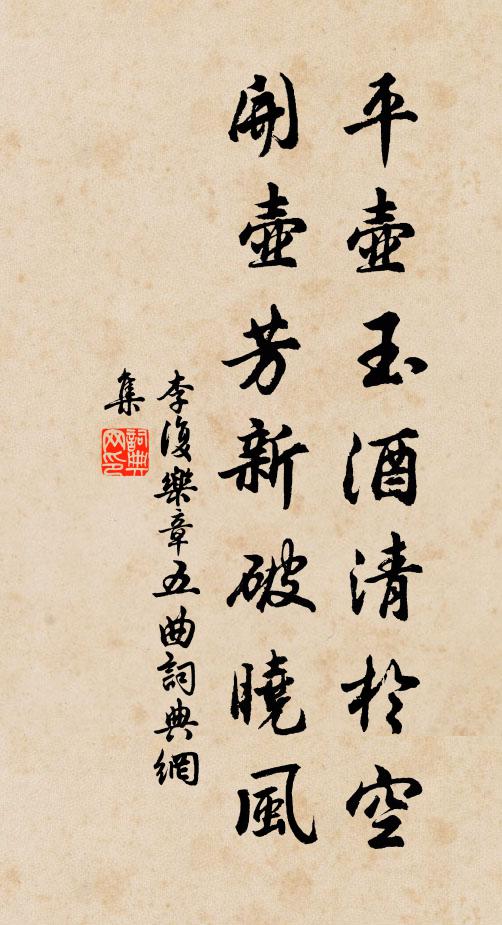 平壺玉酒清於空
開壺芳新破曉風
李復樂章五曲詞典網
集
詞典網印